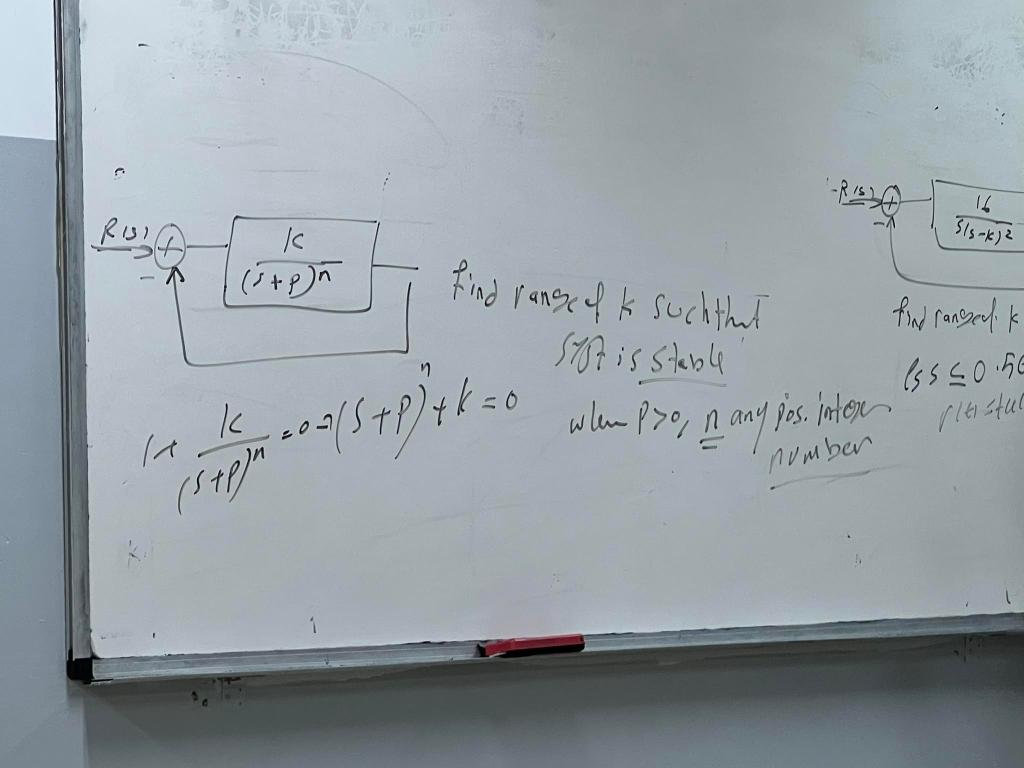 R(s)
+
-
K
(s+p)^n
find range of k such that
syst is stable
when P>0, n any pos. integer
number
1+ K/(s+p)^n =0 → (s+p)^n + k = 0
R(s)
+
-
16
s(s-k)^2
find range of. k
ess ≤ 0.50